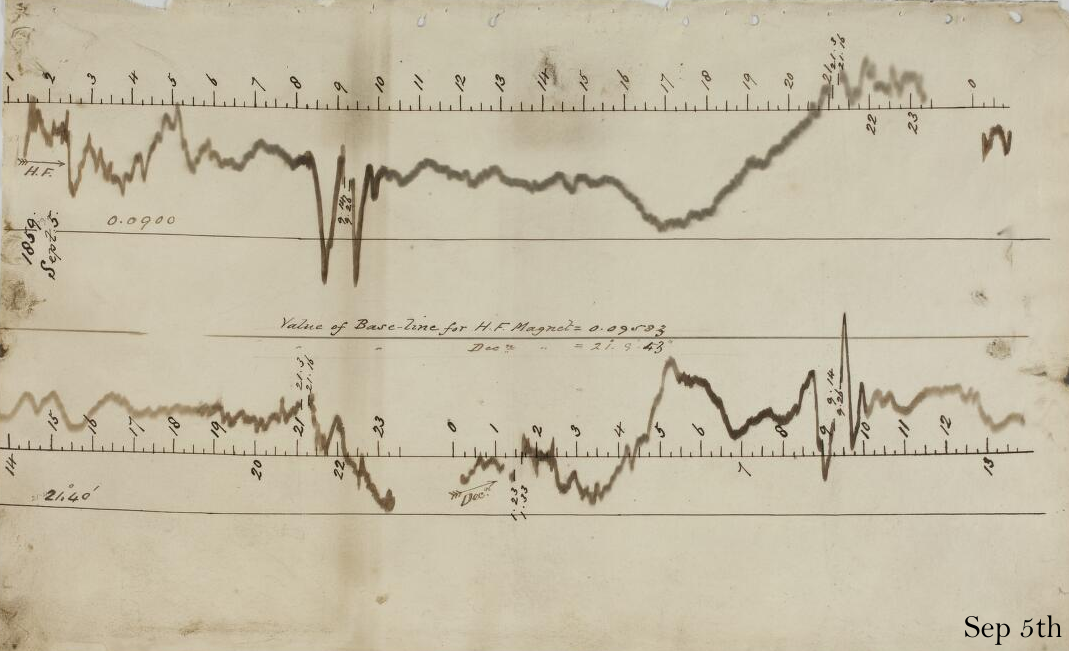 1 2 3 4 5 6 7 8 9 10 11 12 13 14 15 16 17 18 19 20 21 0
21.3
21.16
22 23
H.F.
9.14
9.26
1859.
Sept. 5.
0.0900
Value of Base-line for H.F. Magnet = 0.09583
21.3
21.16
9.14
9.26
14 15 16 17 18 19 20 21 22 23 0 1 2 3 4 5 6 7 8 9 10 11 12 13
21°.40'
Decn.
1.23
1.33
Sep 5th